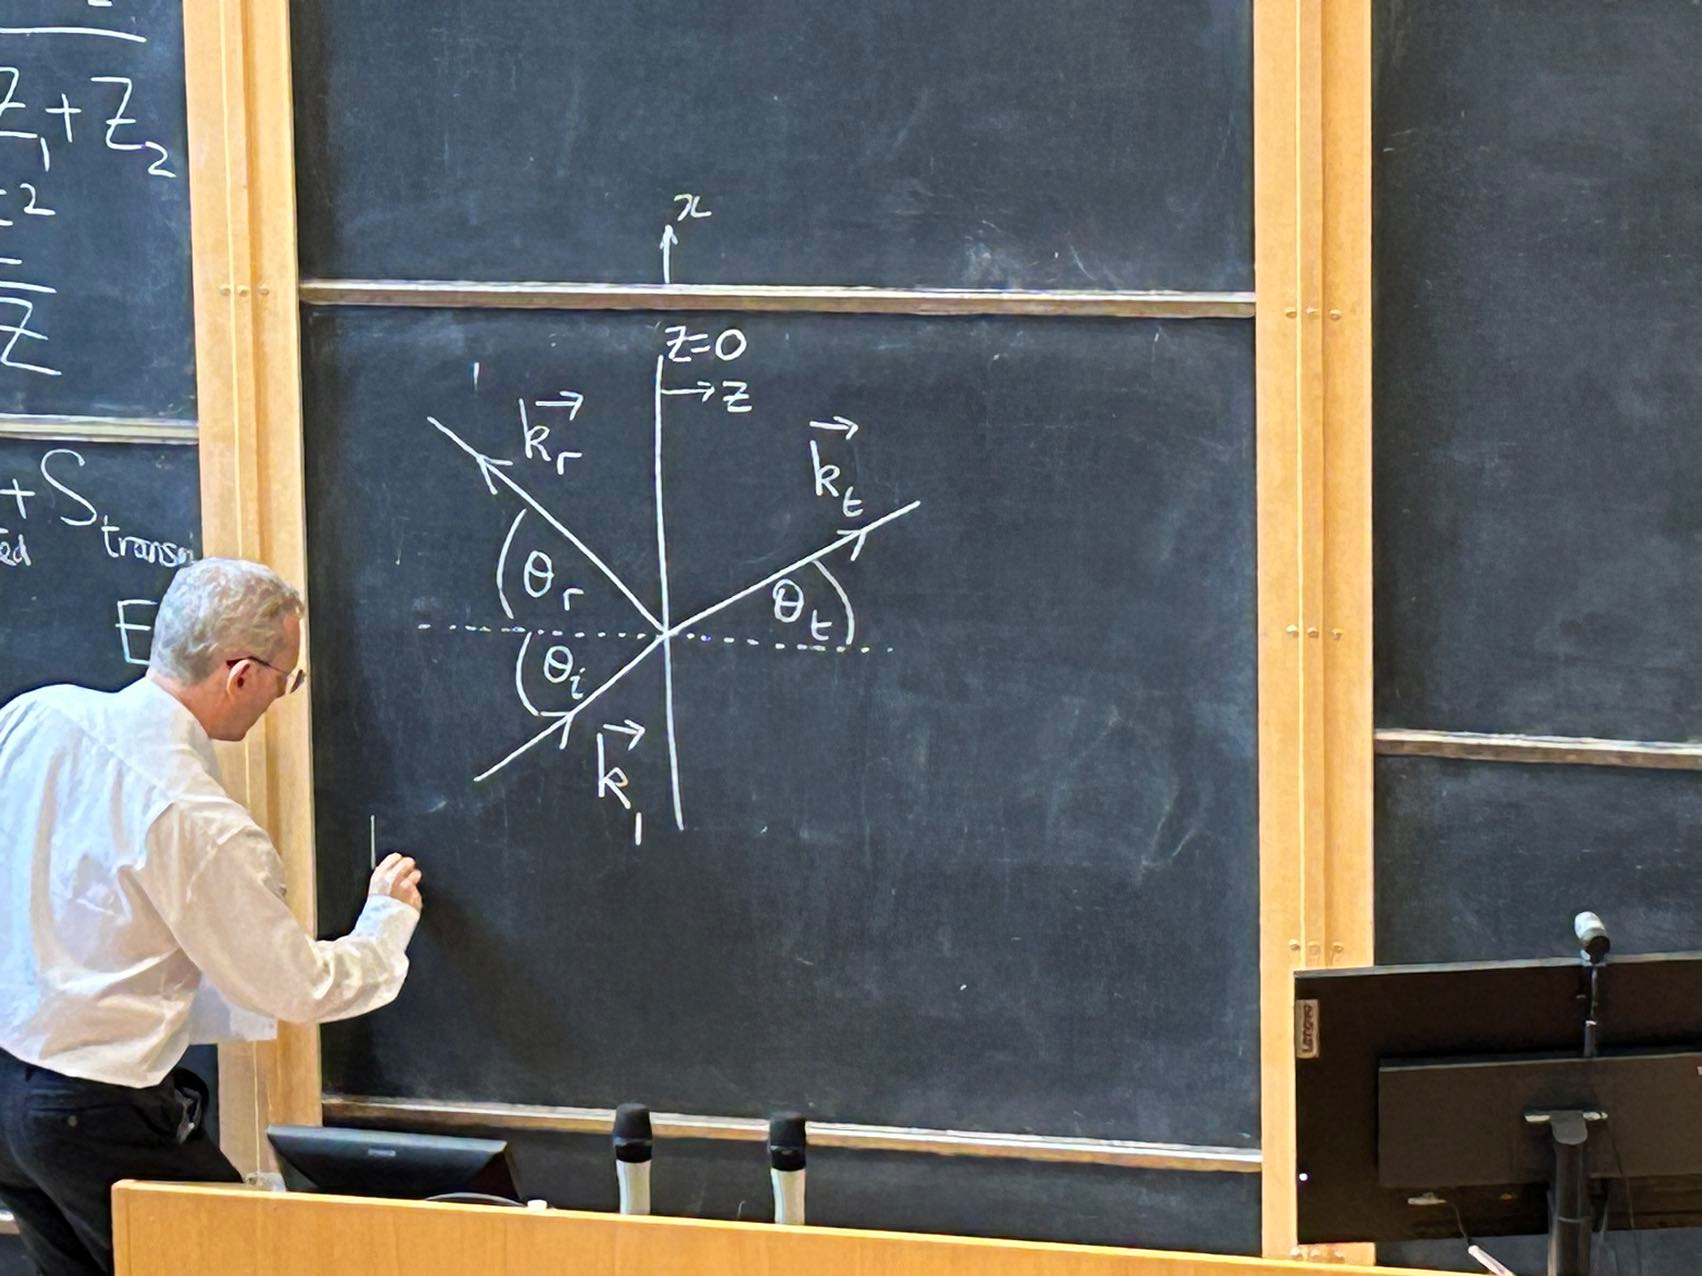 Z₁+Z₂
2
Z
+ S transm
ed
E
x
z=0
→ z
k⃗r
k⃗t
θr
θt
θi
k⃗i
Lenovo